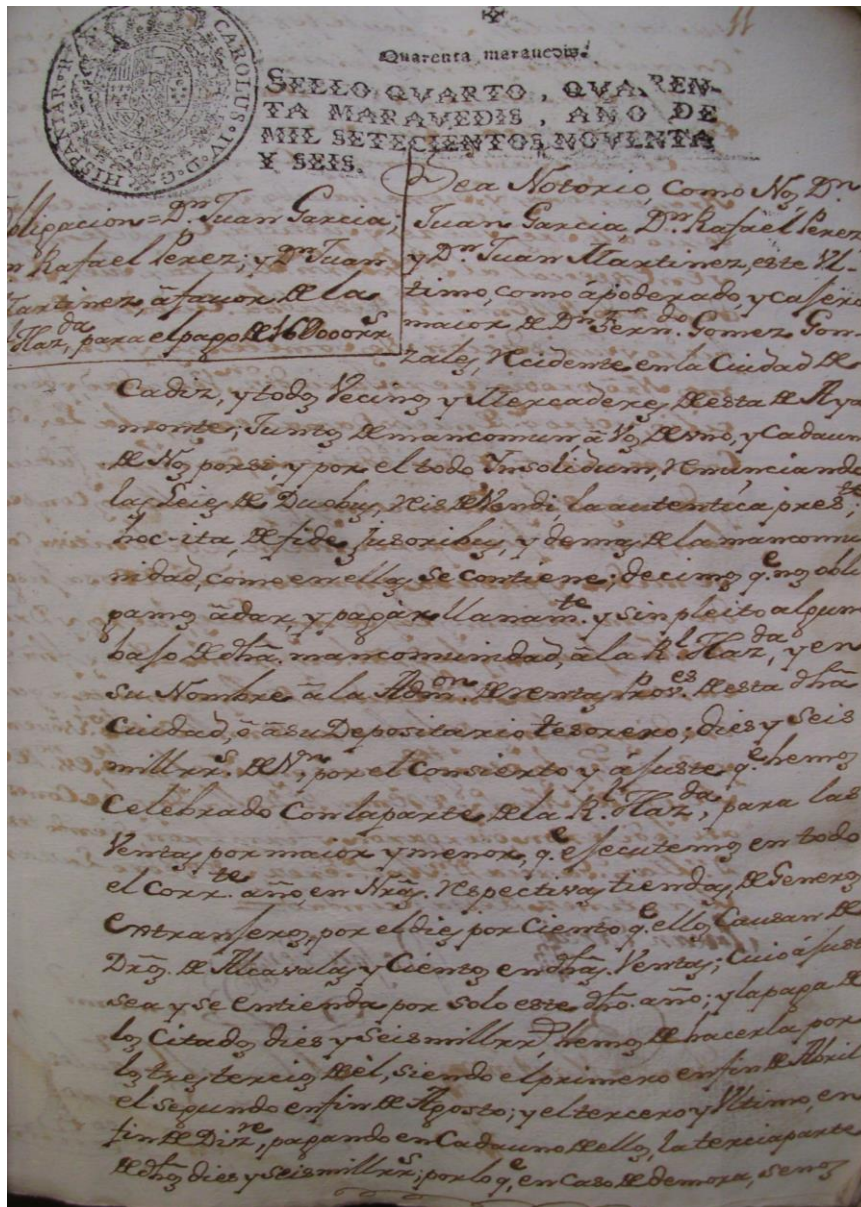 11
Quarenta marauedis.
SELLO QVARTO, QVAREN-
TA MARAVEDIS, AÑO DE
MIL SETECIENTOS NOVENTA
Y SEIS.
CAROLUS·IV·D·G·HISPANIAR·R
bligacion = Dn. Juan Garcia;
n Rafael Perez; y Dn Juan
Martinez, â favor de la
l Hazda, para el pago de 16000 rrs
Sea Notorio, como Nos Dn
Juan Garcia, Dn. Rafael Perez,
y Dn. Juan Martinez, este Vl-
timo, como âpoderado y casero
maior de Dn Ferndo Gomez Gon-
zales, recidente en la Ciudad de
Cadiz, y todos Vecinos y Mercaderes de esta de Aya
monte; Juntos de mancomun â Vos de vno, y Cada un
de Nos por si, y por el todo Insolidum, renunciando
las Leies de Duobus, reis devendi, la autentica preste,
hoc-ita, de fide, Jusoribus, y demas de la mancomu
nidad, como en ellas se contiene; decimos qe. nos obli
gamos â dar, y pagar llanamte. y sin pleito algun
baso de dha. mancomunidad, â la Rl Hazda, y en
su Nombre â la Admon. de rentas proves. de esta dha
Ciudad, ô â su Depositario tesorero; dies y seis
mill rrs. de Vn, por el Consierto y âjuste qe. hemos
Celebrado con la parte de la Rl. Hazda, para las
Ventas por maior y menor, qe esecutemos en todo
el Corrte. año, en Nras. respectivas tiendas, de Generos
extranjeros, por el dies por Ciento qe ellos Causan de
Dros. de Alcavalas y Cientos en dhas. Ventas; Cuio âjust
sea y se entienda por solo este dho. año; y la paga de
los Citados dies y seis mill rrs hemos de hacerla por
los tres tercios de èl, siendo el primero en fin de Abril
el segundo en fin de Agosto; y el tercero y Vltimo, en
fin de Dizre, pagando en Cada uno de ellos, la tercia parte
de dhos dies y seis mill rrs; por lo qe, en Caso de demora, se nos